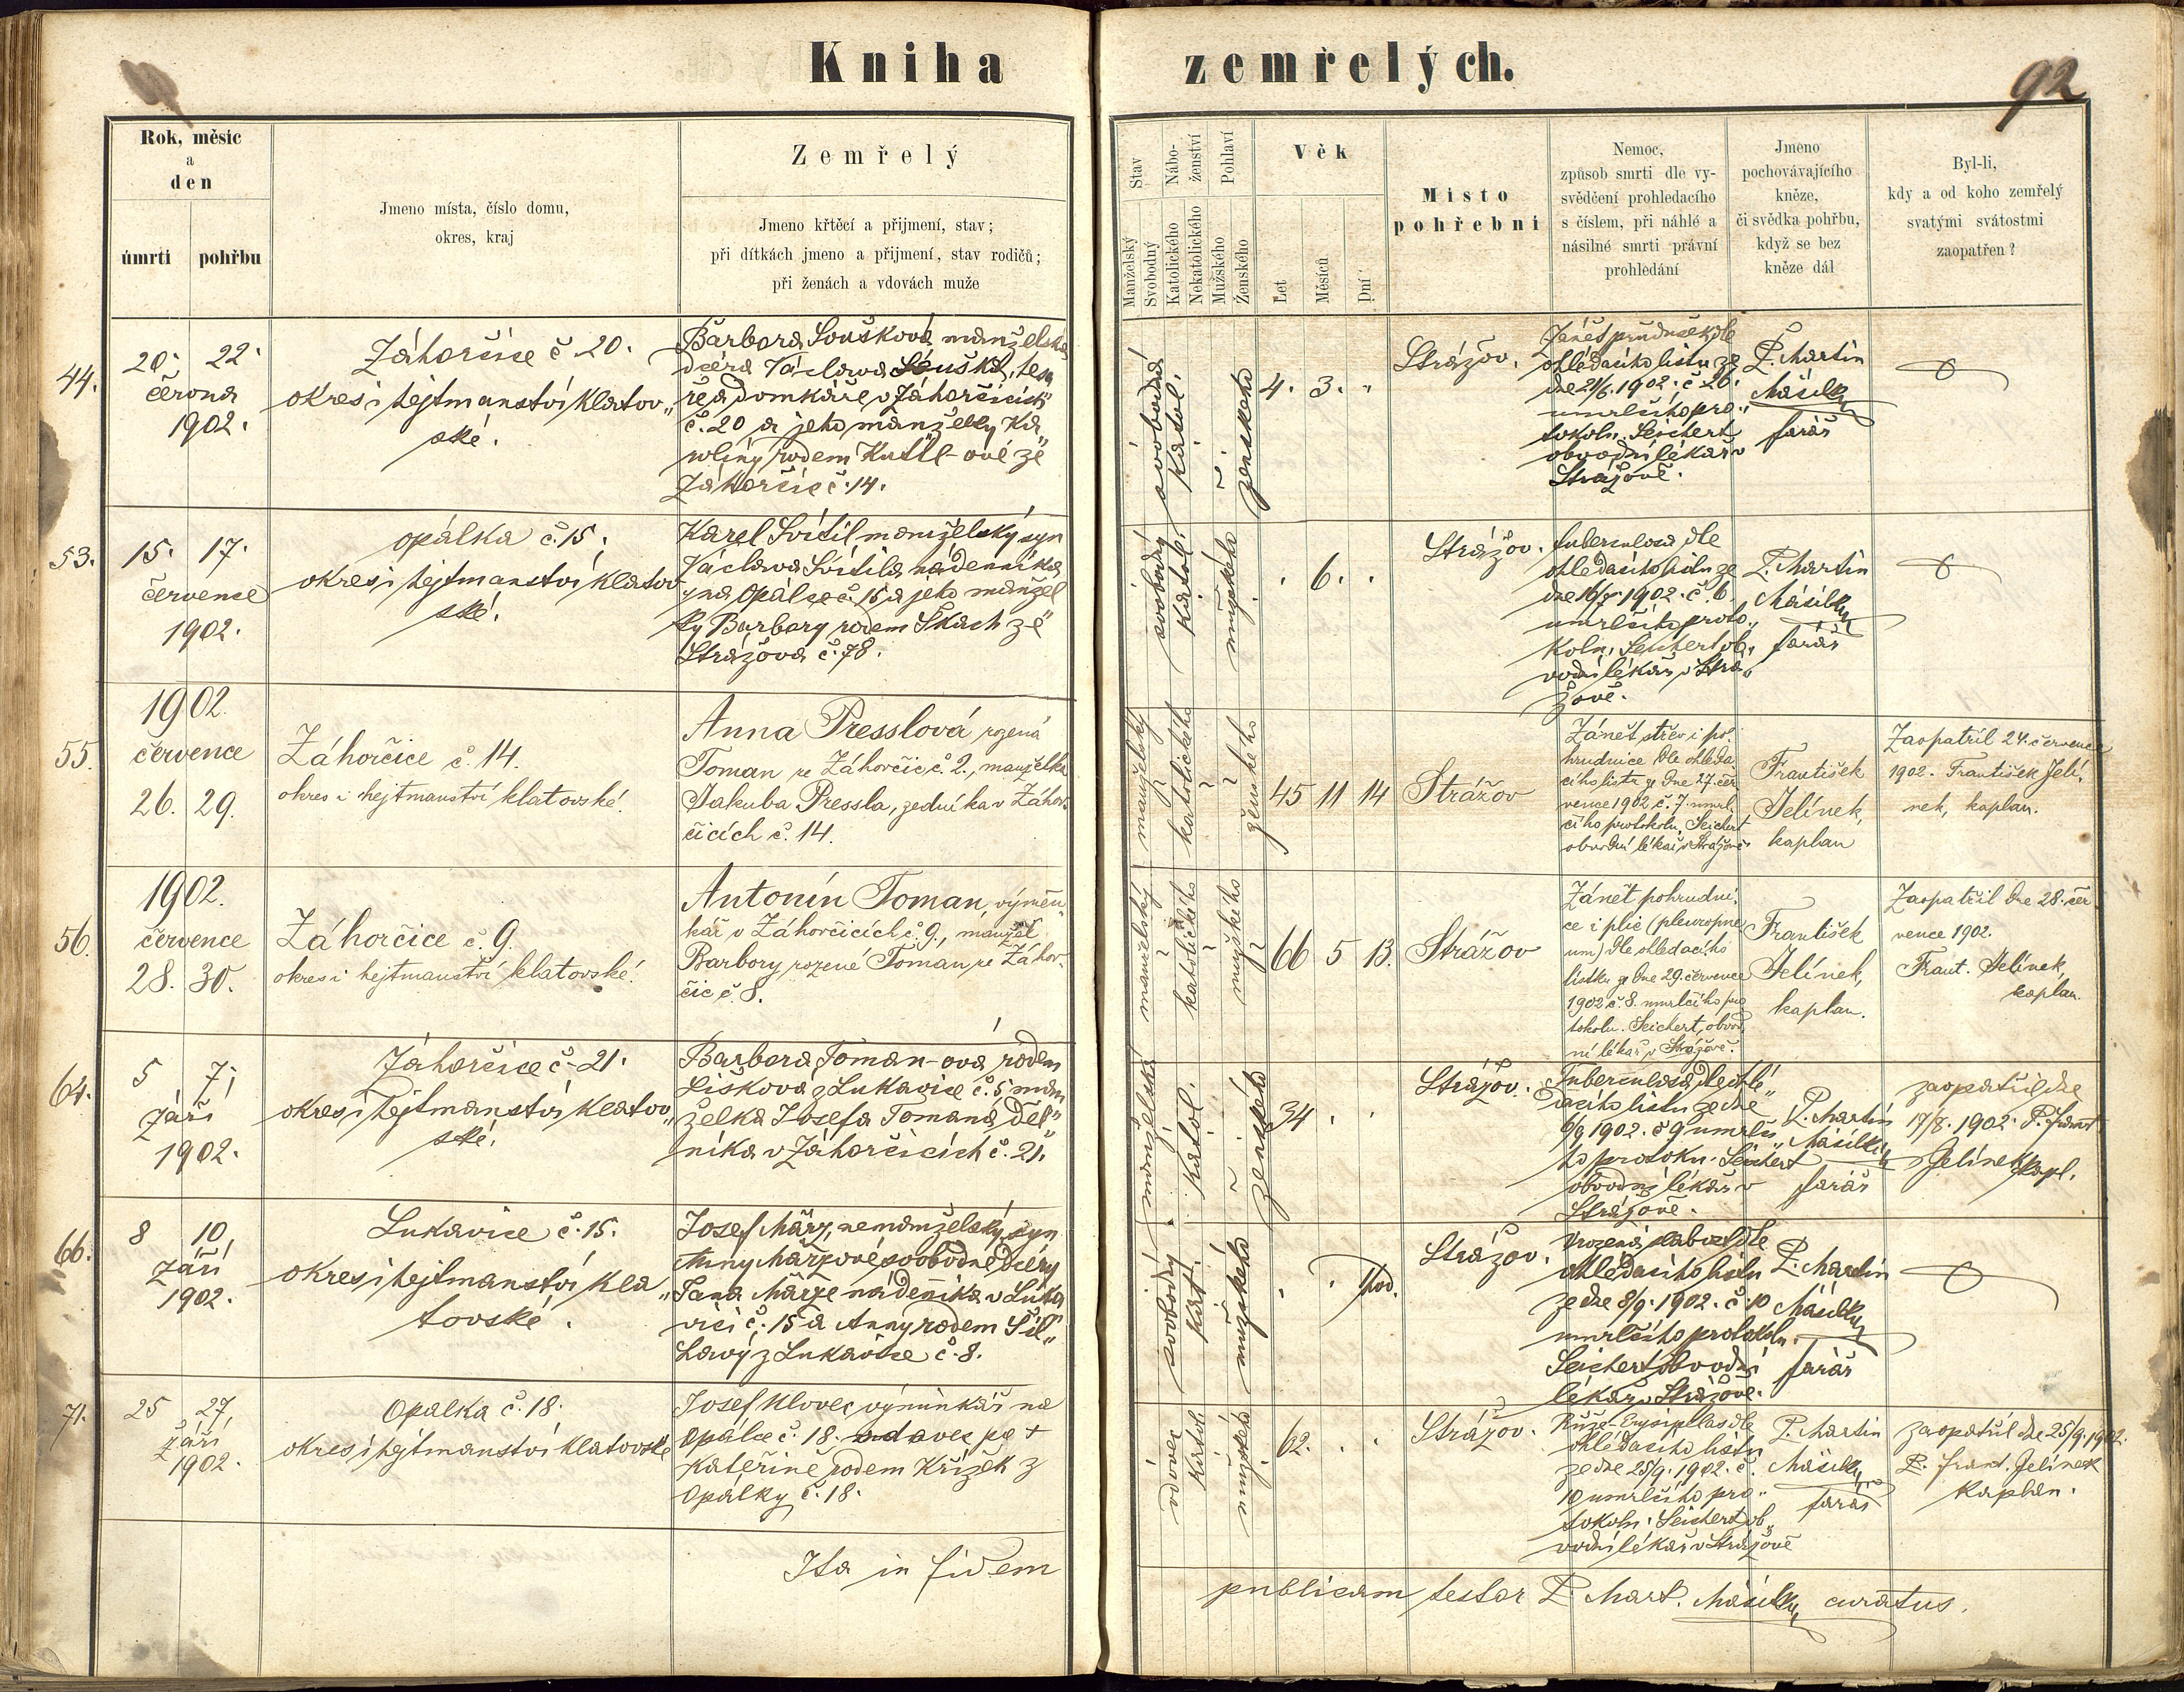 Kniha zemřelých.
92
Rok, měsíc
a
den
úmrtí pohřbu
Jmeno místa, číslo domu,
okres, kraj
Zemřelý
Jmeno křtěcí a přijmení, stav;
při dítkách jmeno a přijmení, stav rodičů;
při ženách a vdovách muže
Stav
Manželský
Svobodný
Nábo-
ženství
Katolického
Nekatolického
Pohlaví
Mužského
Ženského
Věk
Let
Měsíců
Dní
Místo
pohřební
Nemoc,
způsob smrti dle vy-
svědčení prohledacího
s číslem, při náhlé a
násilné smrti právní
prohledání
Jmeno
pochovávajícího
kněze,
či svědka pohřbu,
když se bez
kněze dál
Byl-li,
kdy a od koho zemřelý
svatými svátostmi
zaopatřen?
44.
20. 22.
června
1902.
Záhorčice č 20.
okres i hejtmanství Klatov„
ské.
Barbora Soušková manželská
dcera Václava Soušká, tesa
ře a domkáře v Záhorčicích
č. 20 a jeho manželky Ka
rolíny rodem -ové ze
Záhorčic č. 14.
svobodná
katol.
ženského
4. 3. „
Strážov.
Zánět průdušek dle
ohledacího listu ze
dne 21/6. 1902. č 26.
umrlčího pro„
tokolu. Seichert
obvodní lékař v
Strážově.
P. Martin
Másilko
farář
53.
15. 17.
července
1902.
Opálka č. 15.
okres i hejtmanství Klatov
ské.
Karel Svítil manželský syn
Václava Svítila nádenníka
na Opálce č. 15 a jeho manžel
ky Barbory rodem Skach ze
Strážova č. 78.
svobodný
katol.
mužského
. 6. .
Strážov.
tuberculosa dle
ohledacího listu ze
dne 16/7. 1902. č. 6.
umrlčího proto„
kolu. Seichert ob„
vodní lékař v Strá„
žově.
P. Martin
Másilko
farář
55.
1902.
července
26. 29.
Záhorčice č. 14.
okres i hejtmanství klatovské.
Anna Presslová rozená
Toman ze Záhorčic č. 2., manželka
Jakuba Pressla, zedníka v Záhor-
čicích č. 14.
manželský
katolického
ženského
45 11 14
Strážov
Zánět střev i po
hrudnice dle ohleda
cího listu ze dne 27. čer
vence 1902 č. 7. umrl
čího protokolu, Seichert
obvodní lékař v Strážově.
František
Jelínek,
kaplan
Zaopatřil 24. července
1902. František Jelí„
nek, kaplan.
56.
1902.
července
28. 30.
Záhorčice č. 9.
okres i hejtmanství klatovské.
Antonín Toman, výměn„
kář v Záhorčicích č. 9., manžel
Barbory rozené Toman ze Záhor-
čic č. 8.
manželský
katolického
mužského
66 5 13.
Strážov
Zánět pohrudni„
ce i plic (pleuropneu
um) dle ohledacího
lístku ze dne 29. července
1902 č 8. umrlčího pro
tokolu. Seichert, obvod„
ní lékař v Strážově.
František
Jelínek,
kaplan.
Zaopatřil dne 28. čer
vence 1902.
Frant. Jelínek,
kaplan.
64.
5 7.
září
1902.
Záhorčice č. 21.
okres i hejtmanství Klatov„
ské.
Barbora Toman-ová rodem
Lišková z Lukavice č. 5 man
želka Josefa Tomana děl„
níka v Záhorčicích č. 21.
manželská
katol.
ženského
34 . .
Strážov.
Tuberculosa dle ohle„
dacího listu ze dne
6/9 1902. č 9 umrlčí„
ho protoku. Seichert
obvodní lékař v
Strážově.
P. Martin
Másilko
farář
zaopatřil dne
17/8. 1902. P. Frant
Jelínek kapl.
66.
8 10
září
1902.
Lukavice č. 15.
okres i hejtmanství Kla„
tovské.
Josef März, nemanželský syn
Anny Märzové, svobodné dcery
Jana Märze nádeníka v Luka
vici č. 15 a Anny rodem Šil„
havý z Lukavice č. 8.
svobodný
kat.
mužského
. . 1 hod.
Strážov.
Vrozená slabost dle
ohledacího listu
ze dne 8/9. 1902. č. 10
umrlčího protokolu.
Seichert obvodní
lékař v Strážově.
P. Martin
Másilko
farář
71.
25 27
září
1902.
Opálka č. 18.
okres i hejtmanství Klatovské
Josef Klovec, výminkář na
Opálce č. 18. vdovec po †
Kateřině rodem Křížek z
Opálky č. 18.
vdovec
katol.
mužského
62. . .
Strážov.
Růže-Erysipelas dle
ohledacího listu
ze dne 25/9. 1902. č.
10 umrlčího pro„
tokolu. Seichert ob„
vodní lékař v Strážově
P. Martin
Másilko
farář
zaopatřil dne 25/9. 1902.
P. Frant. Jelínek
kaplan.
Ita in fidem publicam testor P. Mart. Másilko, curatus.